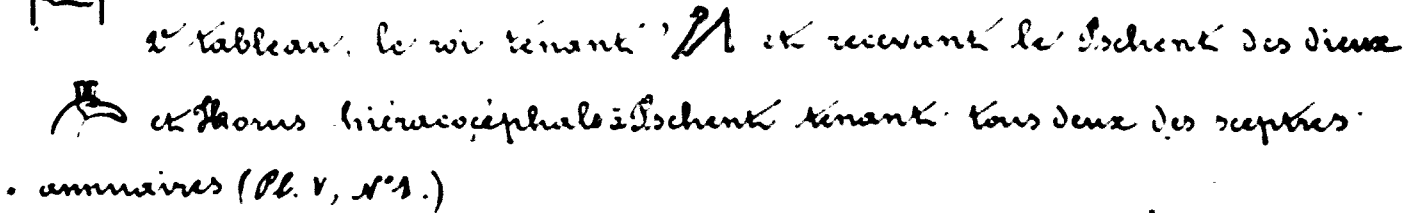 2e tableau. le roi tenant et recevant le Pschent des dieux
et Horus hiéracocéphale à Pschent tenant tous deux des sceptres
annuaires (Pl. V, N° 1.)